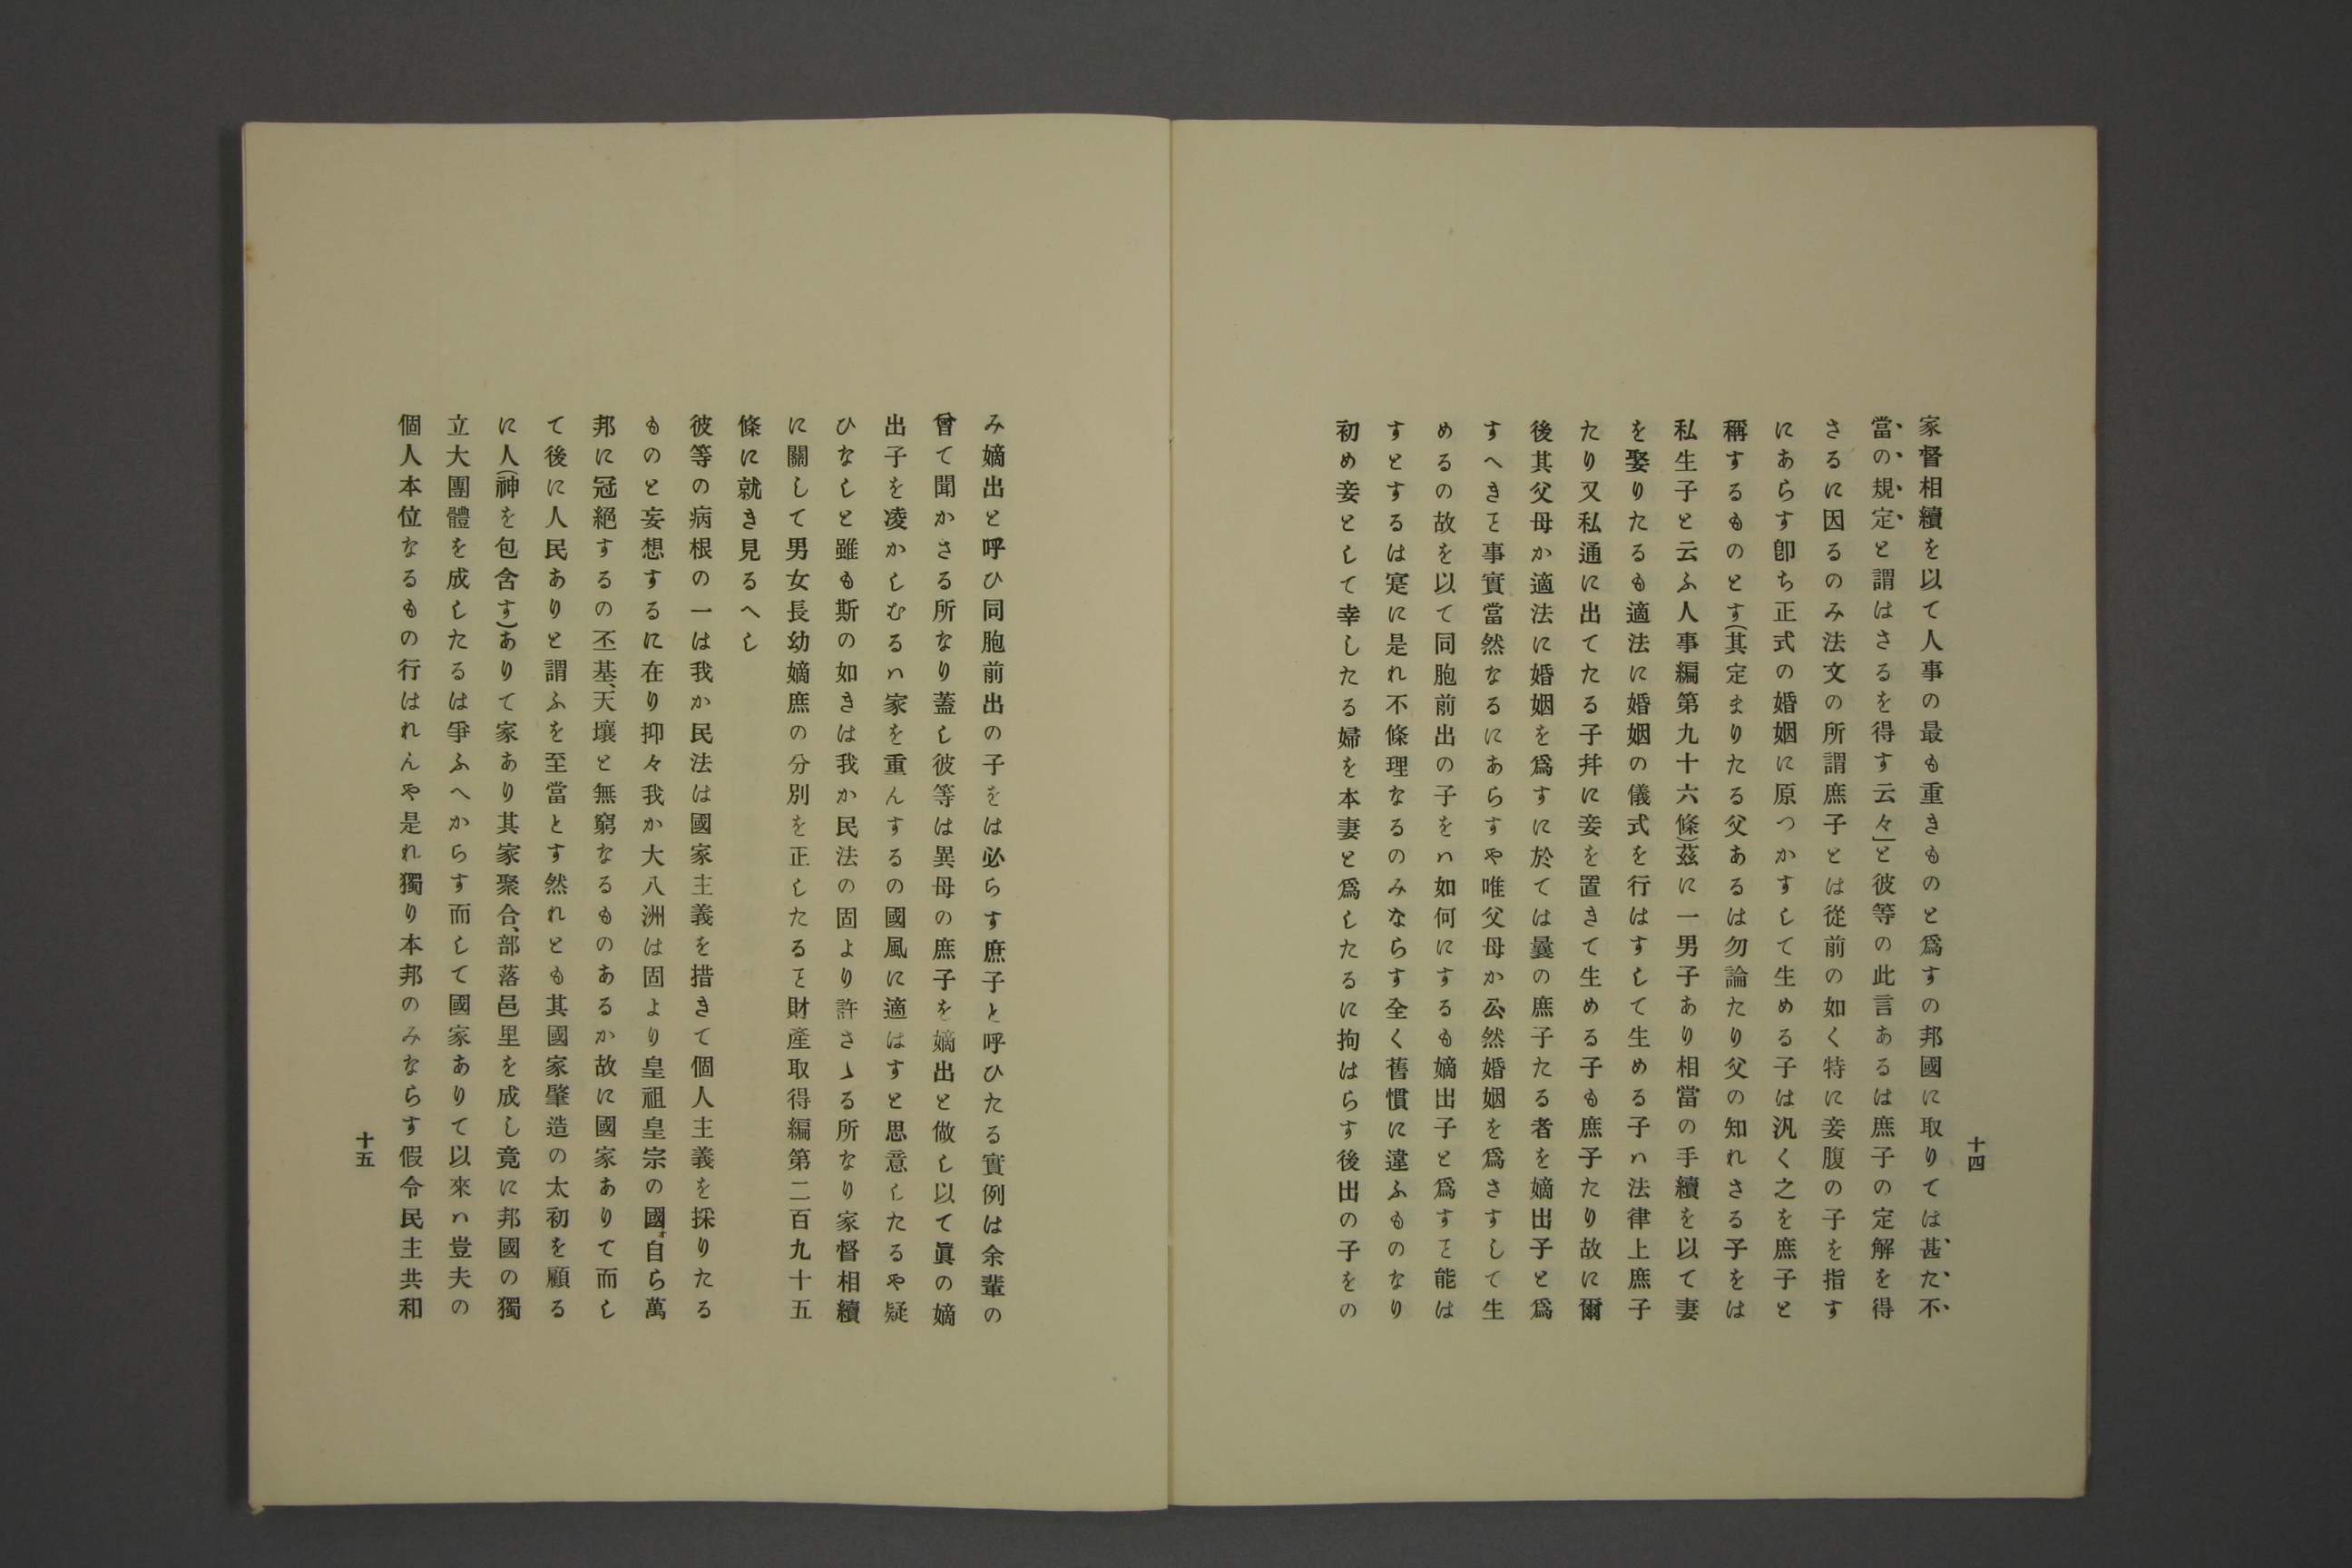 十四
家督相續を以て人事の最も重きものと爲すの邦國に取りては甚た不
當の規定と謂はさるを得す云々」と彼等の此言あるは庶子の定解を得
さるに因るのみ法文の所謂庶子とは從前の如く特に妾腹の子を指す
にあらす卽ち正式の婚姻に原つかすして生める子は汎く之を庶子と
稱するものとす(其定まりたる父あるは勿論たり父の知れさる子をは
私生子と云ふ人事編第九十六條)茲に一男子あり相當の手續を以て妻
を娶りたるも適法に婚姻の儀式を行はすして生める子ハ法律上庶子
たり又私通に出てたる子幷に妾を置きて生める子も庶子たり故に爾
後其父母か適法に婚姻を爲すに於ては曩の庶子たる者を嫡出子と爲
すへきヿ事實當然なるにあらすや唯父母か公然婚姻を爲さすして生
めるの故を以て同胞前出の子をハ如何にするも嫡出子と爲すヿ能は
すとするは寔に是れ不條理なるのみならす全く舊慣に違ふものなり
初め妾として幸したる婦を本妻と爲したるに拘はらす後出の子をの
み嫡出と呼ひ同胞前出の子をは必らす庶子と呼ひたる實例は余輩の
曾て聞かさる所なり蓋し彼等は異母の庶子を嫡出と做し以て眞の嫡
出子を凌かしむるハ家を重んするの國風に適はすと思意したるや疑
ひなしと雖も斯の如きは我か民法の固より許さゝる所なり家督相續
に關して男女長幼嫡庶の分別を正したるヿ財產取得編第二百九十五
條に就き見るへし
彼等の病根の一は我か民法は國家主義を措きて個人主義を採りたる
ものと妄想するに在り抑々我か大八洲は固より皇祖皇宗の國ォ自ら萬
邦に冠絕するの丕基、天壤と無窮なるものあるか故に國家ありて而し
て後に人民ありと謂ふを至當とす然れとも其國家肇造の太初を顧る
に人(神を包含す)ありて家あり其家聚合、部落邑里を成し竟に邦國の獨
立大團體を成したるは爭ふへからす而して國家ありて以來ハ豈夫の
個人本位なるもの行はれんや是れ獨り本邦のみならす假令民主共和
十五